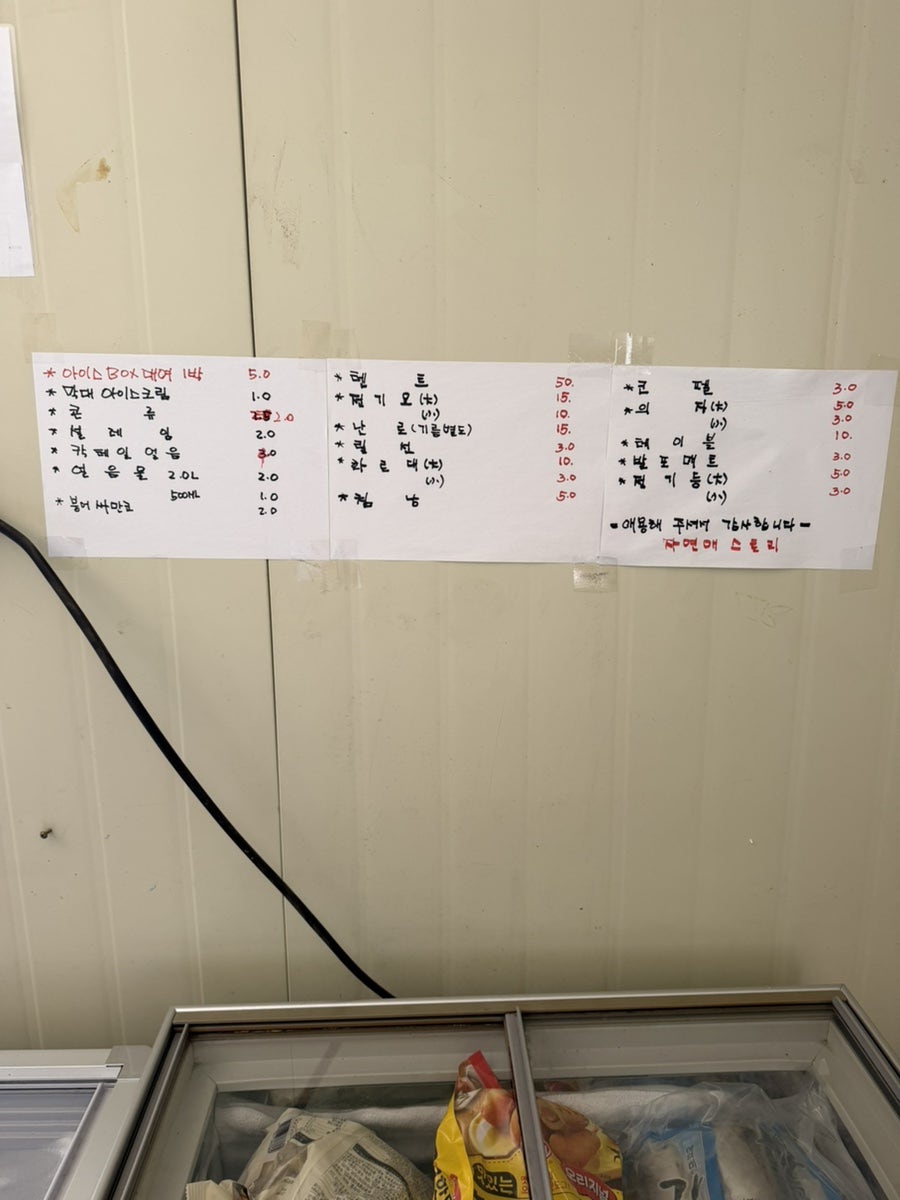 * 아이스 BOX 대여 1박 5.0
* 막대 아이스크림 1.0
* 콘 류 2.0
* 설 레 임 2.0
* 칵 테 일 얼 음
* 얼 음 물 2.0L 2.0
500ML 1.0
* 붕어 싸만코 2.0
* 텐 트 50.
* 전 기 요 (大) 15.
(小) 10.
* 난 로 (기름별도) 15.
* 릴 선 3.0
* 파 로 대 (大) 10.
(小) 3.0
* 침 낭 5.0
* 코 펠 3.0
* 의 자 (大) 5.0
(小) 3.0
* 테 이 블 10.
* 발 포 매 트 3.0
* 전 기 등 (大) 5.0
(小) 3.0
- 애용해 주셔서 감사합니다 -
자연애 스토리
맛있는
오리지널